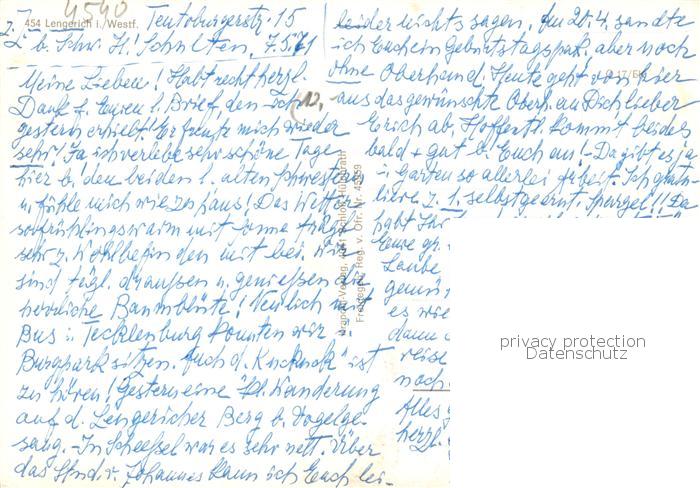 4540
454 Lengerich i./Westf.
Z. Z. Teutoburgerstr. 15
b. Schw. H. Schulten, 7.5.71
Meine Lieben! Habt recht herzl.
Dank f. Euren l. Brief, den ich
gestern erhielt! Er freute mich wieder
sehr! Ja ich verlebe sehr schöne Tage
hier b. den beiden l. alten Schwestern
u. fühle mich wie zu Haus! Das Wetter
so frühlingswarm mit Sonne trägt
sehr z. Wohlbefinden mit bei. Wir
sind tägl. draußen u. genießen die
herrliche Baumblüte! Neulich mit
Bus i. Tecklenburg konnten wir i.
Burgpark sitzen. Auch d. "Kuckuck" ist
zu hören! Gestern eine kl. Wanderung
auf d. Lengericher Berg b. Vogelge-
sang. - In Scheeßel war es sehr nett. Über
das Stnd. v. Johannes kann ich Euch lei-
leider nichts sagen. Am 20.4. sandte
ich Euch ein Geburtstagspäk., aber noch
ohne Oberhemd. Heute geht von hier
aus das gewünschte Oberh. an Dich lieber
Erich ab. Hoffentl. kommt beides
bald + gut b. Euch an! Da gibt es ja
i. Garten so allerlei Arbeit. Ich gratu-
liere z. 1. selbstgeernt. Spargel!! Da
habt Ihr
Eure gr.
Laube
es wie
dann
reise
noch
Alles
herzl.
privacy protection
Datenschutz